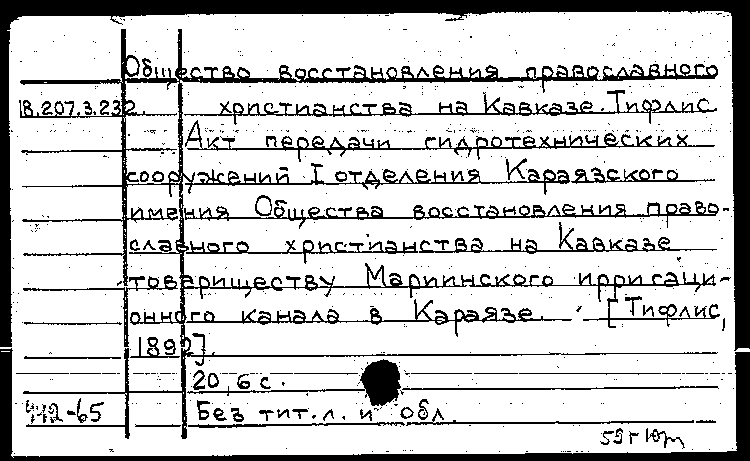 Общество восстановления православного
18.207.3.232. христианства на Кавказе. Тифлис
Акт передачи гидротехнических
сооружений I отделения Караязского
имения Общества восстановления право-
славного христианства на Кавказе
товариществу Мариинского ирригаци-
онного канала в Караязе. [Тифлис,
1892].
20, 6 с.
442-65 Без тит. л. и обл.